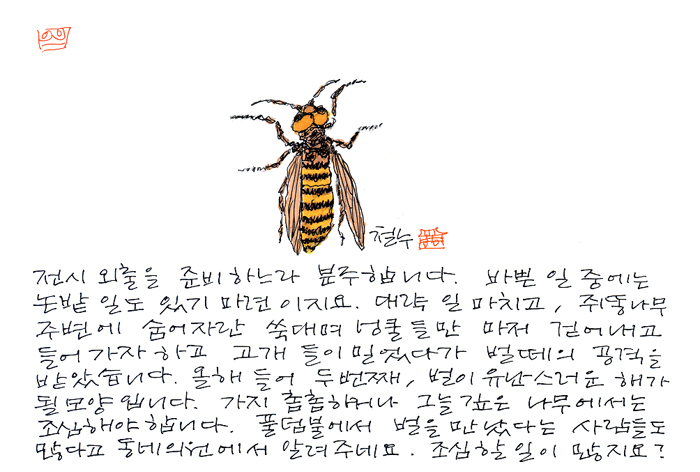 철수
전시 외출을 준비하느라 분주합니다. 바쁜 일 중에는
논밭 일도 있기 마련이지요. 대략 일 마치고, 쥐똥나무
주변에 숨어자란 쑥대며 넝쿨들만 마저 걷어내고
들어가자 하고 고개 들이밀었다가 벌떼의 공격을
받았습니다. 올해 들어 두번째, 벌이 유난스러운 해가
될모양입니다. 가지 촘촘하거나 그늘 깊은 나무에서는
조심해야 합니다. 풀덤불에서 벌을 만났다는 사람들도
많다고 동네의원에서 알려주네요. 조심할 일이 많지요?